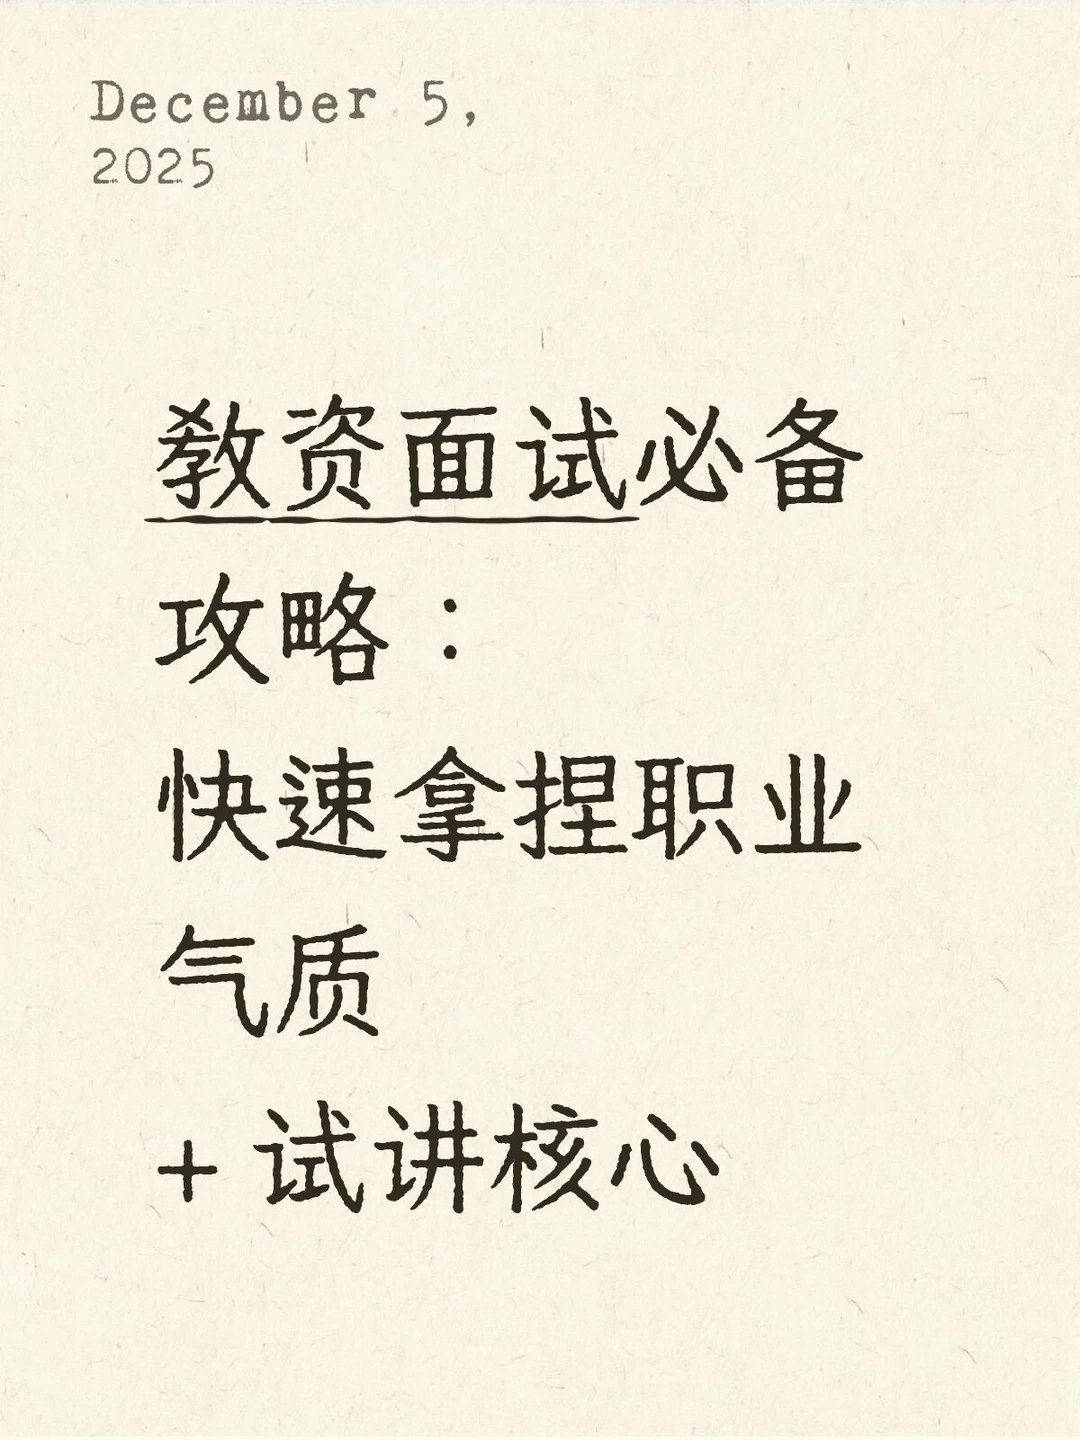 December 5,
2025
教资面试必备
攻略：
快速拿捏职业
气质
+ 试讲核心